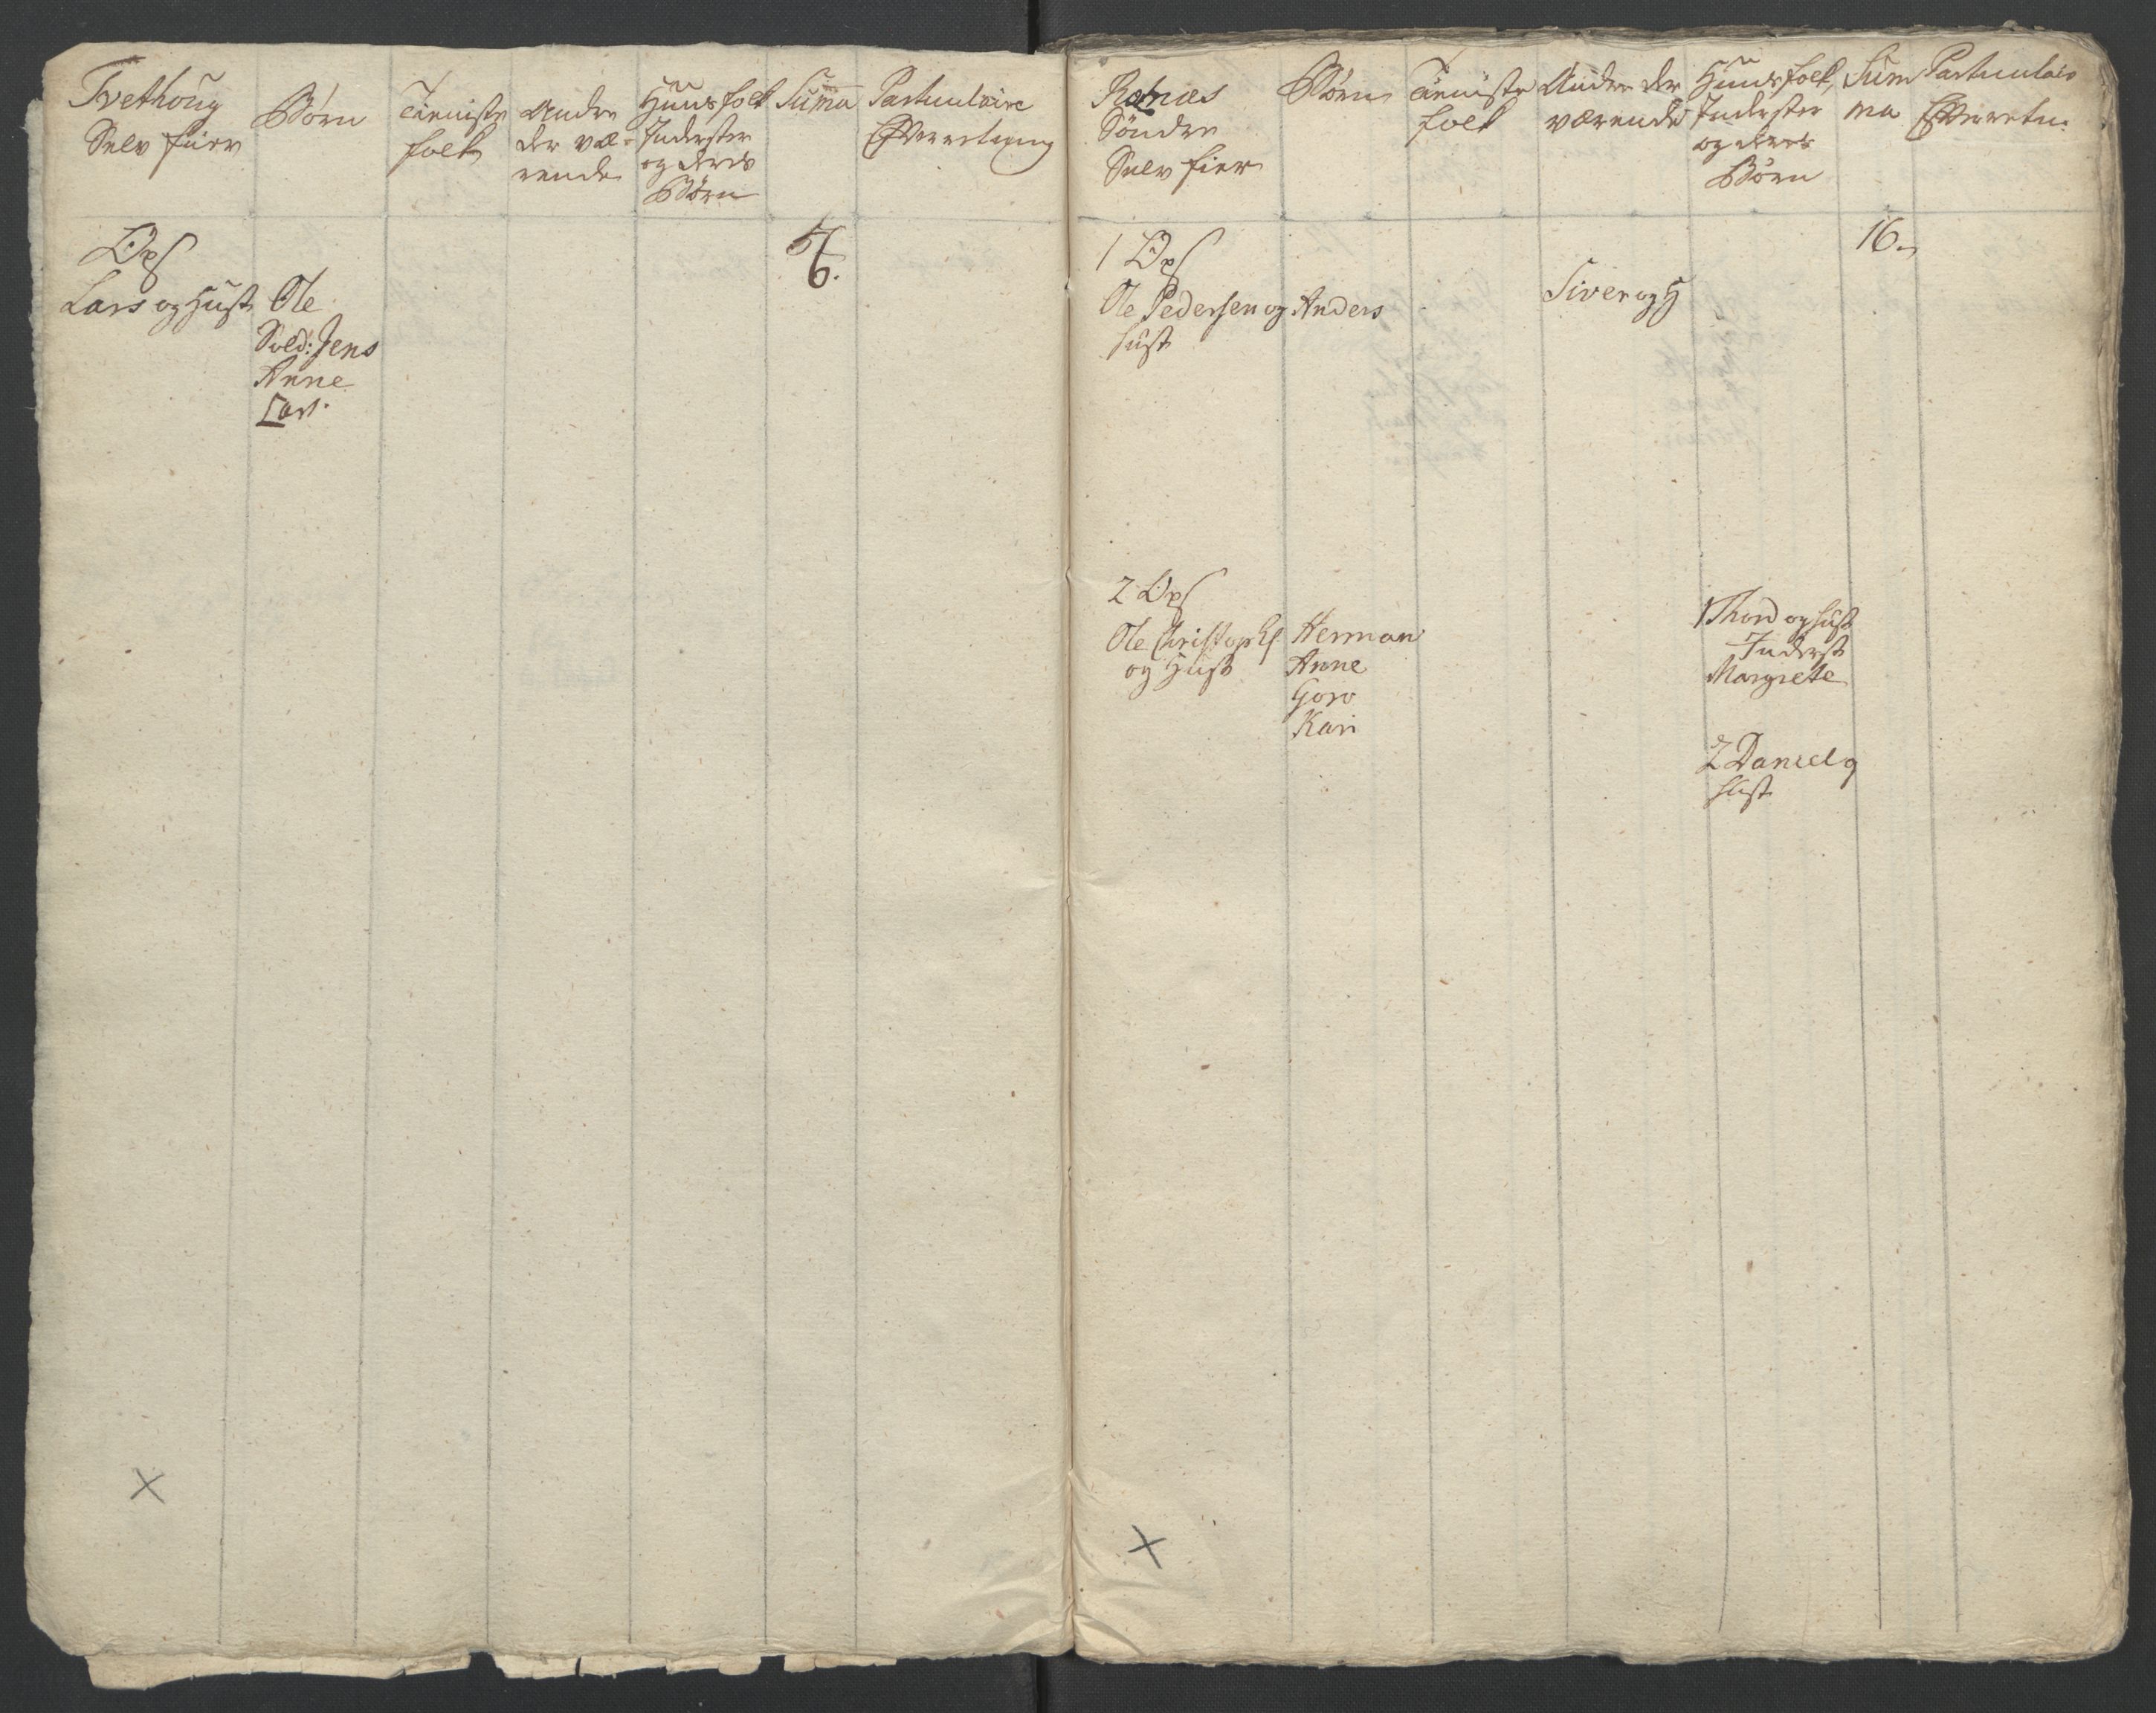 Tvethoug
Selv Eier
Börn
Tieniste
folk
Andre
der væ-
rende
Huusfolk
Inderster
og deres
Börn
Suma
Particulaire
Efterretning
Ops
Lars og Hust
Ole
Sold: Jens
Anne
Lars
6.
X
Ramnes
Söndre
Selv Eier
Börn
Tieniste
folk
Andre der
værende
Huusfolk,
Inderster
og deres
Börn
Sum
ma
Particulair
Efterretn:
1 Ops
Ole Pedersen og
Hust
Anders
Siver og H
16
2 Ops
Ole Christophs
og Hust
Herman
Anne
Goro
Kari
1 Thord og Hust
Inderst
Margrete
2 Daniel og
Hust
X